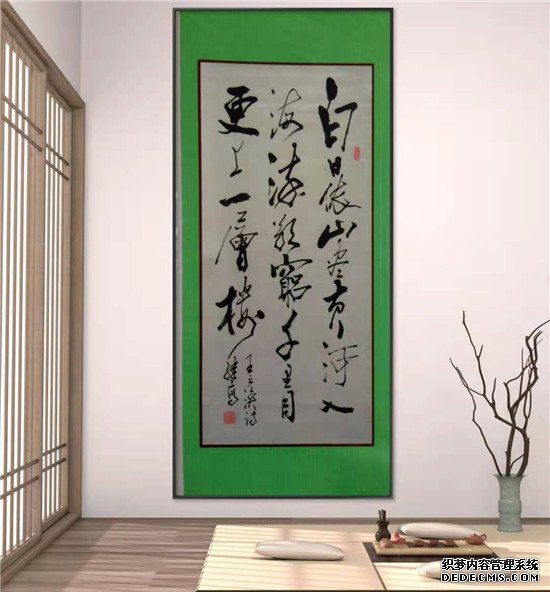 白日依山盡黄河入
海流欲窮千里目
更上一層楼
王之涣诗
织梦内容管理系统
DEDECMS.COM